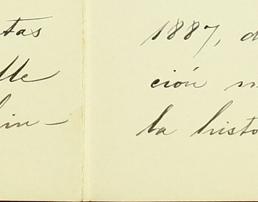 tas
lle
hin-
1887, d
ción m
la histo